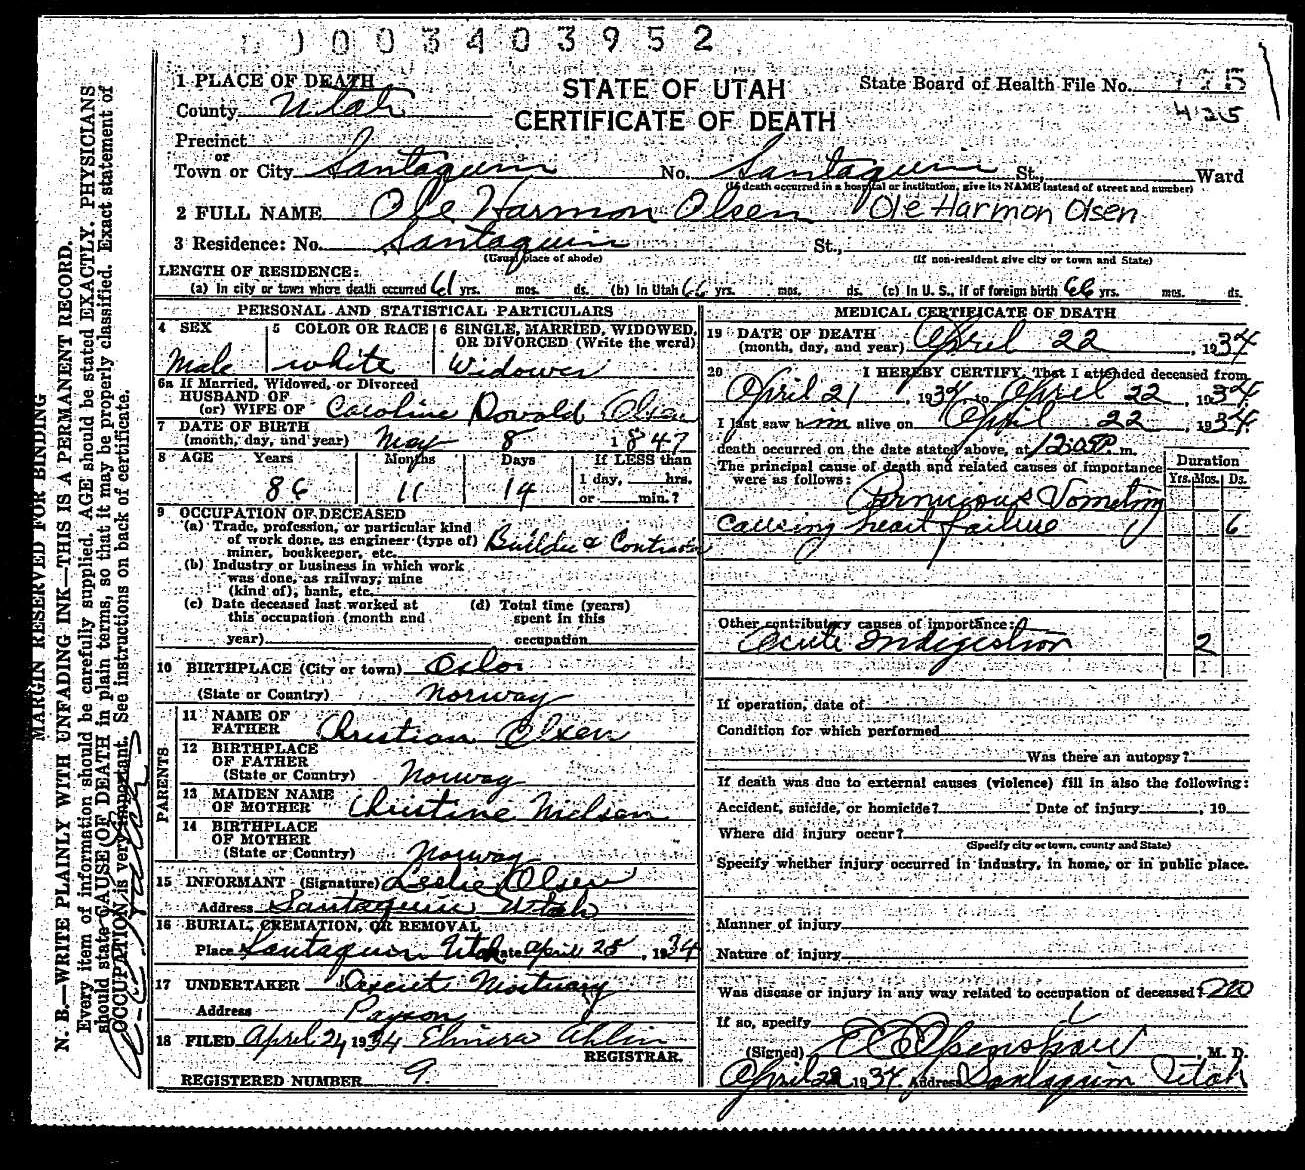 00003403952
1 PLACE OF DEATH
County Utah
STATE OF UTAH
CERTIFICATE OF DEATH
State Board of Health File No.
425
Precinct
or
Town or City Santaquin No. Santaquin St., Ward
(If death occurred in a hospital or institution, give its NAME instead of street and number)
2 FULL NAME Ole Harmon Olsen Ole Harmon Olsen
3 Residence: No. Santaquin St.,
(Usual place of abode) (If non-resident give city or town and State)
LENGTH OF RESIDENCE:
(a) In city or town where death occurred 61 yrs. mos. ds. (b) In Utah 66 yrs. mos. ds. (c) In U. S., if of foreign birth 66 yrs. mos. ds.
PERSONAL AND STATISTICAL PARTICULARS
4 SEX
Male
5 COLOR OR RACE
white
6 SINGLE, MARRIED, WIDOWED, OR DIVORCED (Write the word)
Widower
6a If Married, Widowed, or Divorced
HUSBAND OF
(or) WIFE OF Caroline Olsen
7 DATE OF BIRTH
(month, day, and year) May 8 1847
8 AGE Years Months Days If LESS than
86 11 14 1 day, hrs.
or min.?
9 OCCUPATION OF DECEASED
(a) Trade, profession, or particular kind
of work done, as engineer (type of)
miner, bookkeeper, etc. Builder & Contractor
(b) Industry or business in which work
was done, as railway, mine
(kind of), bank, etc.
(c) Date deceased last worked at
this occupation (month and
year)
(d) Total time (years)
spent in this
occupation
10 BIRTHPLACE (City or town) Oslo
(State or Country) Norway
PARENTS
11 NAME OF
FATHER Christian Olsen
12 BIRTHPLACE
OF FATHER
(State or Country) Norway
13 MAIDEN NAME
OF MOTHER Christine Nielsen
14 BIRTHPLACE
OF MOTHER
(State or Country) Norway
15 INFORMANT (Signature) Leslie Olsen
Address Santaquin Utah
16 BURIAL, CREMATION, OR REMOVAL
Place Santaquin Utah Date April 25, 1934
17 UNDERTAKER Mortuary
Address Payson
18 FILED April 24 1934 Elmira Ahlin
REGISTRAR.
REGISTERED NUMBER 9.
MEDICAL CERTIFICATE OF DEATH
19 DATE OF DEATH
(month, day, and year) April 22, 1934
20 I HEREBY CERTIFY, That I attended deceased from
April 21, 1934, to April 22, 1934
I last saw him alive on April 22, 1934
death occurred on the date stated above, at m.
The principal cause of death and related causes of importance
were as follows:
Duration
Yrs. Mos. Ds.
Pernicious Vometing
causing heart failure 6
Other contributory causes of importance:
Acute Indigestion 2
If operation, date of
Condition for which performed
Was there an autopsy?
If death was due to external causes (violence) fill in also the following:
Accident, suicide, or homicide? Date of injury , 19
Where did injury occur?
(Specify city or town, county and State)
Specify whether injury occurred in industry, in home, or in public place.
Manner of injury
Nature of injury
Was disease or injury in any way related to occupation of deceased? no
If so, specify
(Signed) , M. D.
April 22 1934 Address Santaquin Utah
MARGIN RESERVED FOR BINDING
N. B.—WRITE PLAINLY WITH UNFADING INK—THIS IS A PERMANENT RECORD.
Every item of information should be carefully supplied. AGE should be stated EXACTLY. PHYSICIANS
should state CAUSE OF DEATH in plain terms, so that it may be properly classified. Exact statement of
OCCUPATION is very important. See instructions on back of certificate.